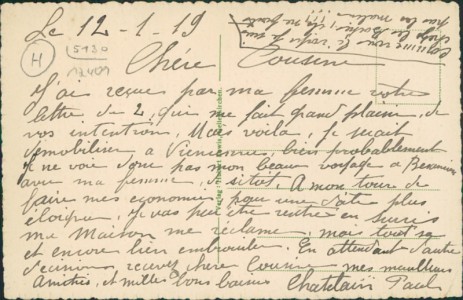 Le 12-1-19
H
5130
17409
Comme vous
Chère Cousine
J'ai reçue par ma femme votre
lettre du 2, qui me fait grand plaisir, de
vos intention. Mais voila, je serait
demobiliser a Vienne, bien probablement
Je ne voie donc pas mon beau voyage a Besançon
avec ma femme, si sitôt. A mon tour de
faire mes economie pour une date plus
éloigner, Je vas peu être rentré en sursis
ma Maison me reclame, mais tout sa
et encore bien embrouiller. En attendant d'autre
reunion recevez chère Cousine mes meilleurs
Amitiés, et milles bons baisers Chatelain Paul